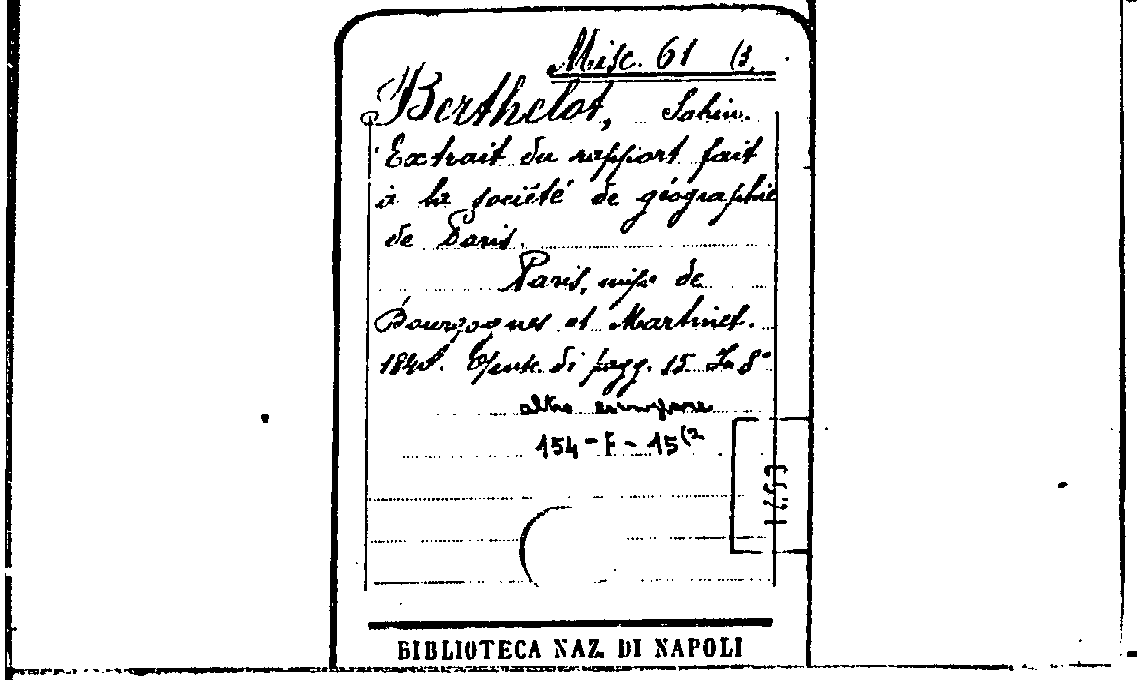 Misc. 61 (3.
Berthelot, Sabin.
Extrait du rapport fait
à la société de géographie
de Paris.
Paris, de
Bourgogne et Martinet.
di pagg. 15. In 8°
altro esemplare
154-F-15(2
BIBLIOTECA NAZ. DI NAPOLI